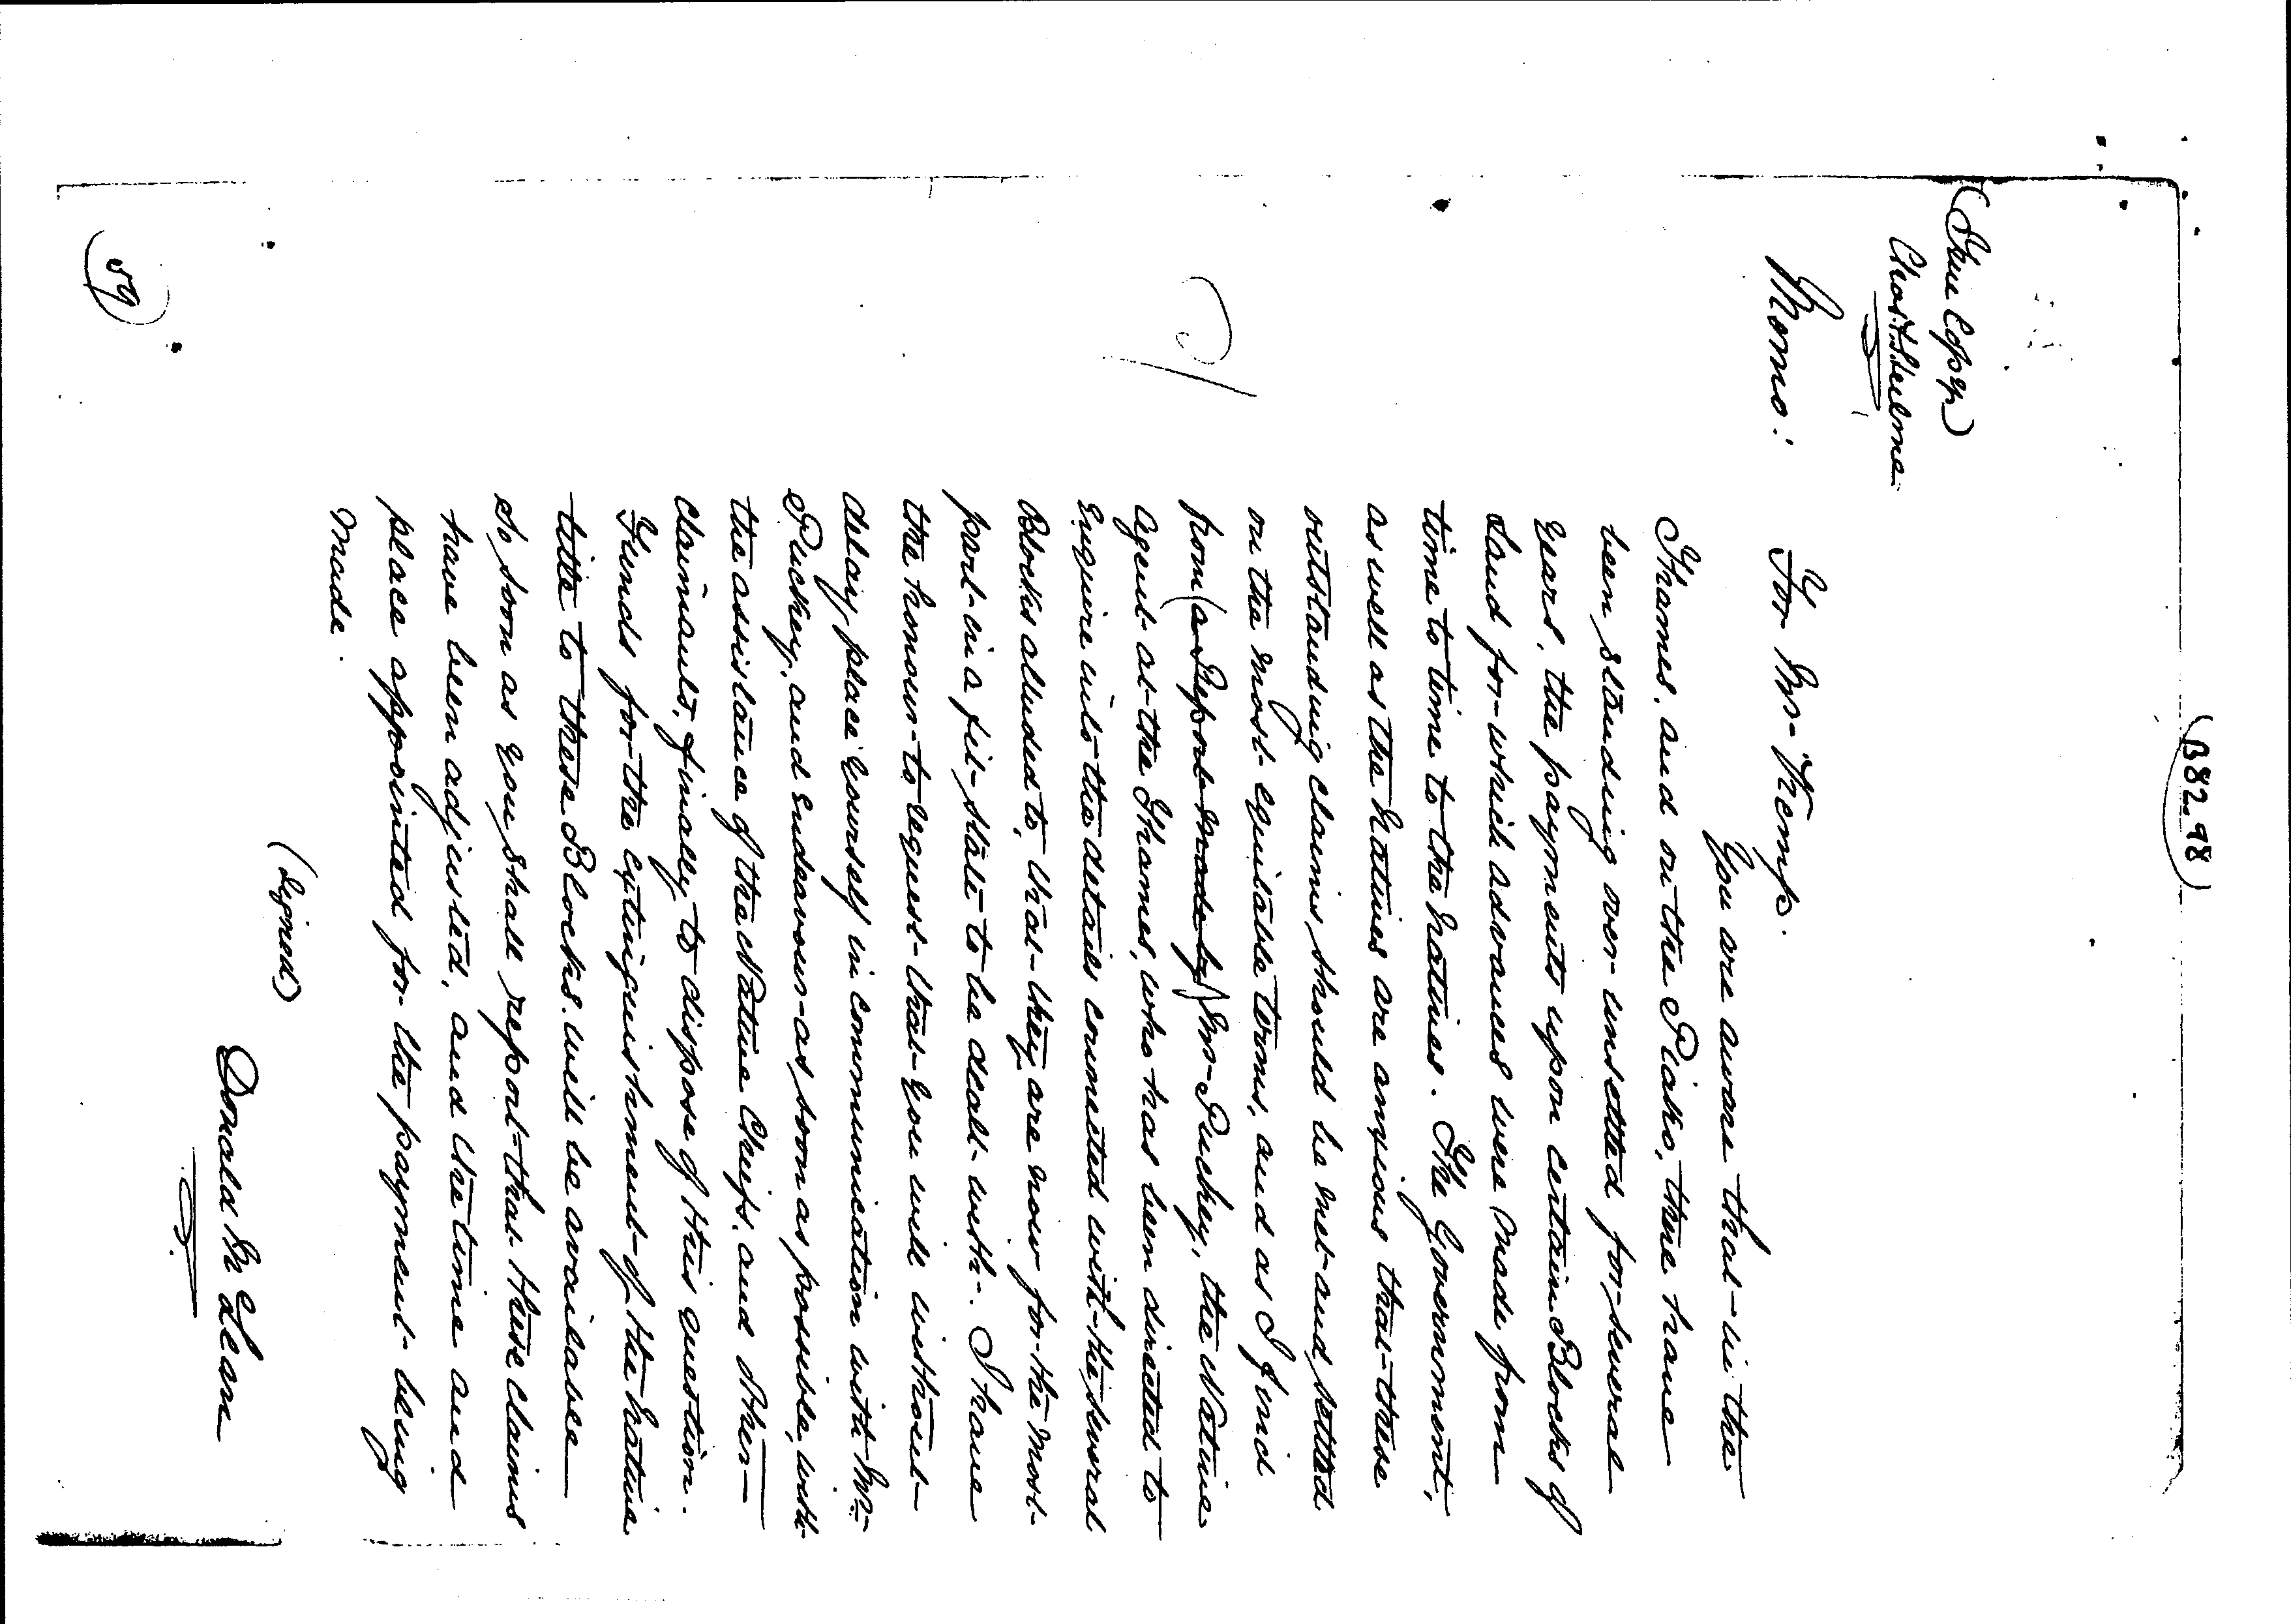 (B 82.98)
(True Copy)
Chas H Hulme
Memo:
For Mr. Kemp.
You are aware that in the
Thames, and on the Piako, there have
been standing over unsettled for several
years, the payments upon certain Blocks of
Land for which advances were made from
time to time to the Natives. The Government,
as well as the Natives are anxious that these
outstanding claims, should be met and settled
on the most equitable terms, and as I find
from (a Report made by) Mr. Puckey, the Native
Agent at the Thames, who has been directed to
Enquire into the details connected with the several
Blocks alluded to, that they are now for the most
part in a fit state to be dealt with. I have
the honour to request that you will without
delay place yourself in communication with Mr.
Puckey, and endeavour as soon as possible, with
the assistance of the Native Chiefs, and other
claimants, finally to dispose of this question.
Funds for the extinguishment of the Native
title to these Blocks will be available
so soon as you shall report that these claims
have been adjusted, and the time and
place appointed for the payment being
made.
(Signed)
Donald McLean
59